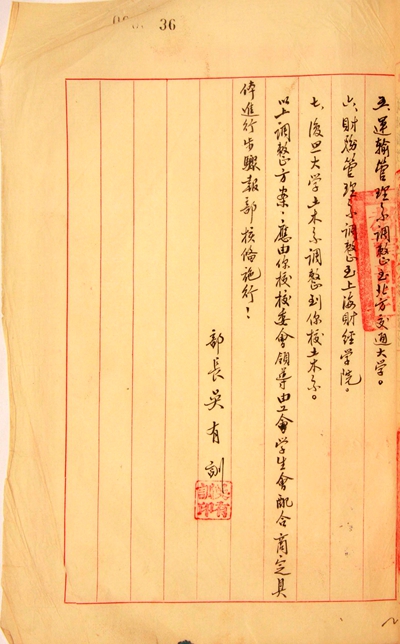 36
五、運輸管理系調整至北方交通大学。
六、財務管理系調整至上海財經学院。
七、復旦大学土木系調整到你校土木系。
以上調整方案,應由你校校委會領導由工會学生會配合商定具
体進行步驟報部核備施行!
部長吳有訓